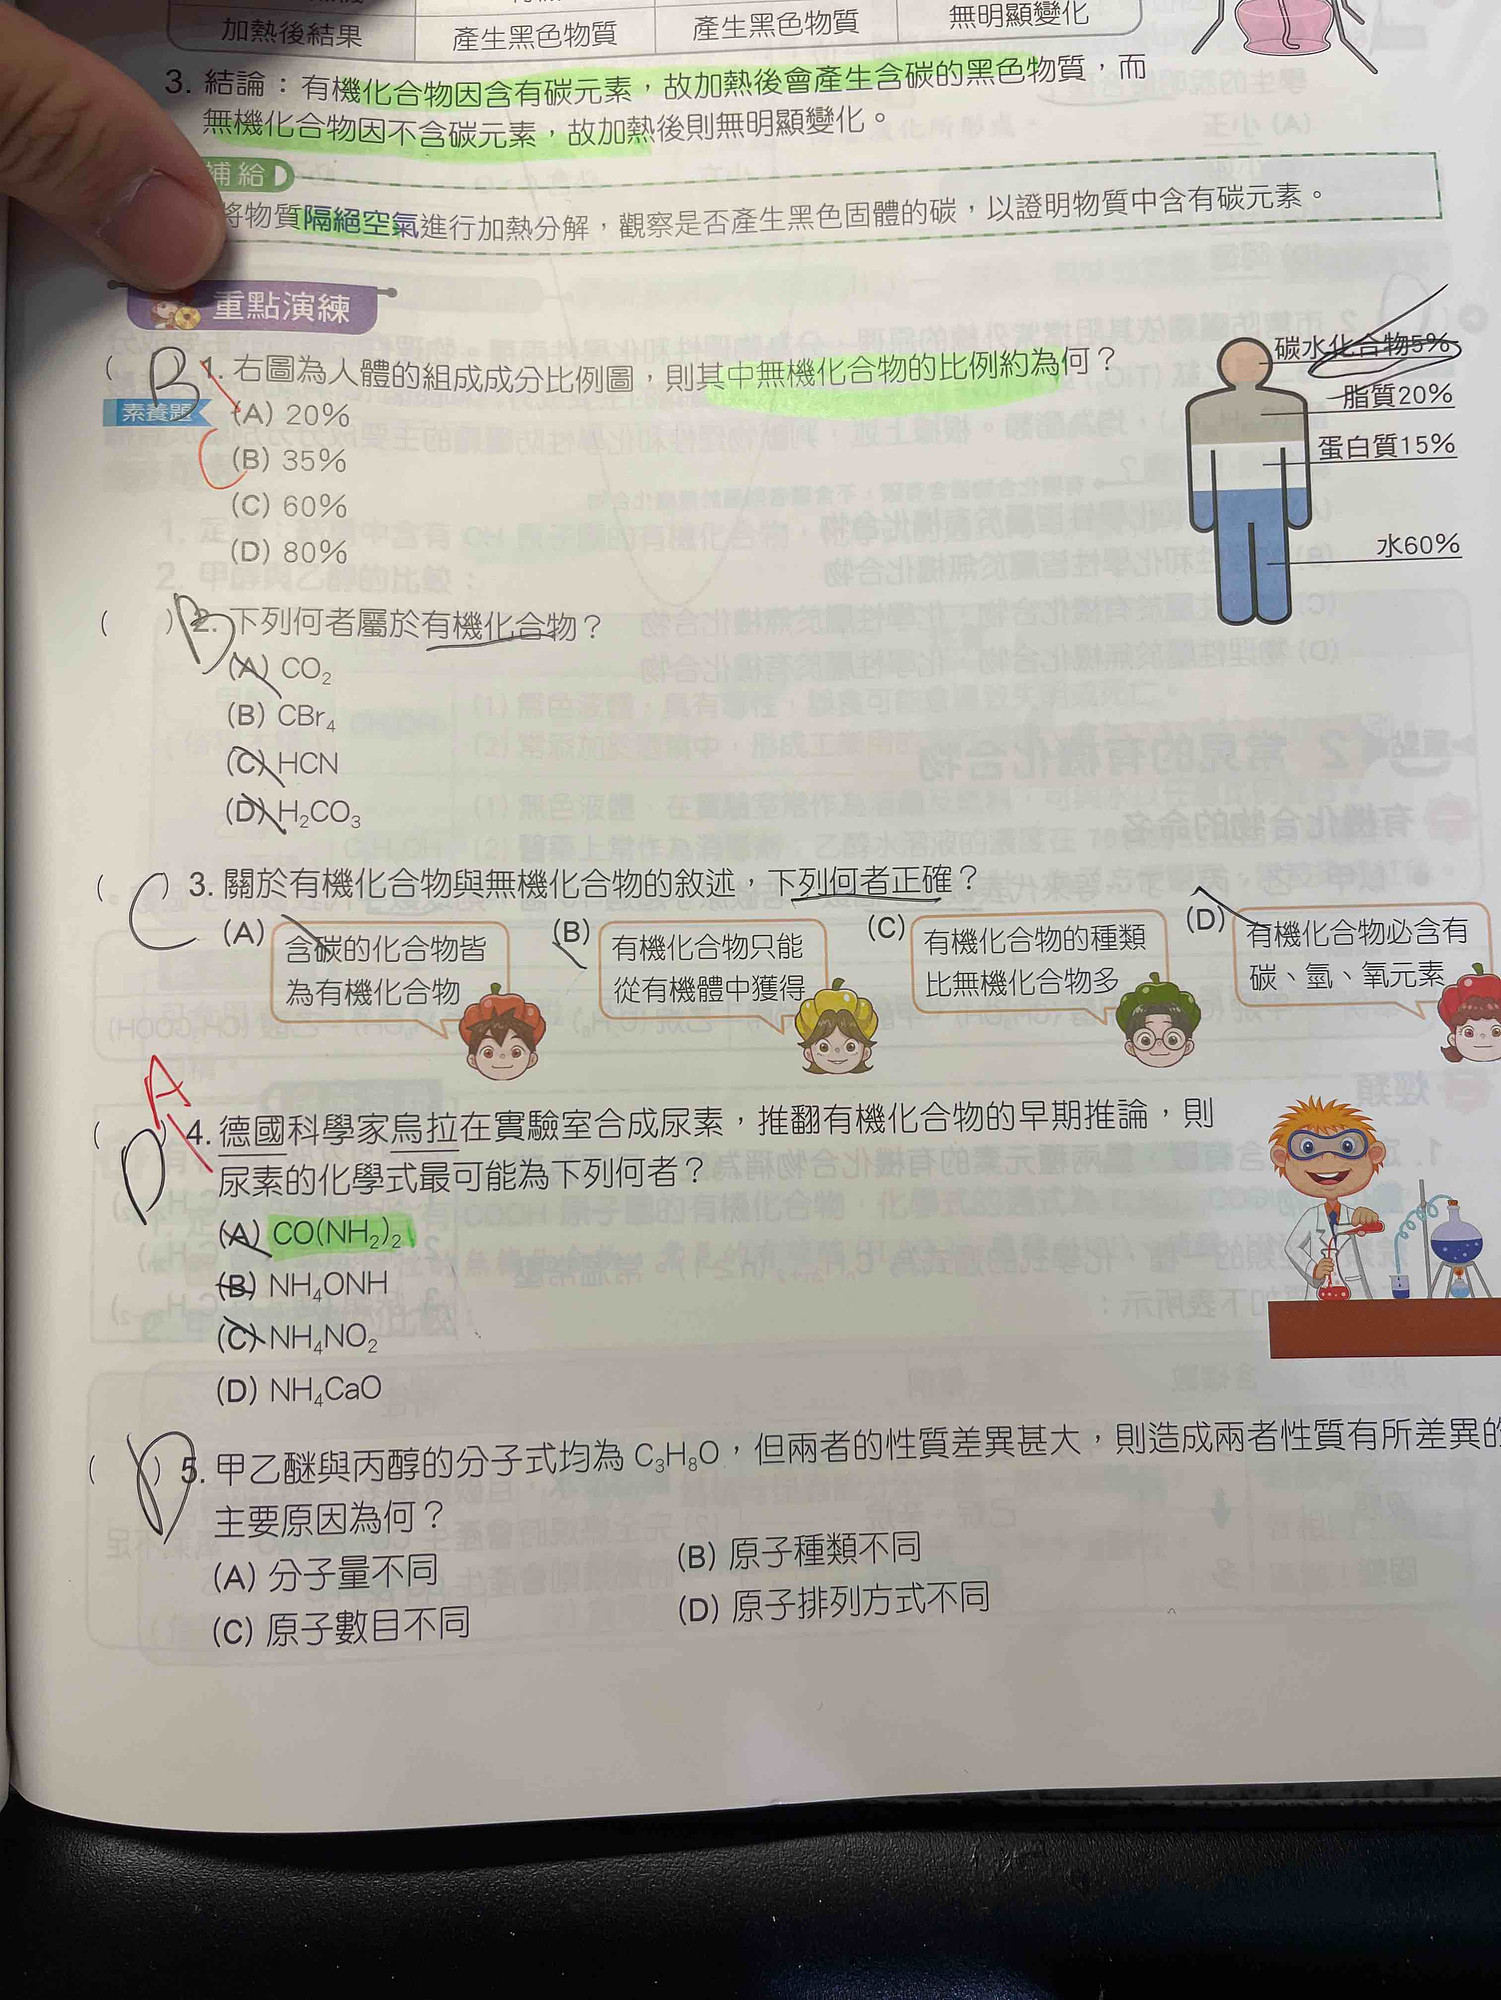 加熱後結果 產生黑色物質 產生黑色物質 無明顯變化
3. 結論：有機化合物因含有碳元素，故加熱後會產生含碳的黑色物質，而
無機化合物因不含碳元素，故加熱後則無明顯變化。
補給
將物質隔絕空氣進行加熱分解，觀察是否產生黑色固體的碳，以證明物質中含有碳元素。
重點演練
( B ) 1. 右圖為人體的組成成分比例圖，則其中無機化合物的比例約為何？
素養題
(A) 20%
(B) 35%
(C) 60%
(D) 80%
碳水化合物5%
脂質20%
蛋白質15%
水60%
( B ) 2. 下列何者屬於有機化合物？
(A) CO₂
(B) CBr₄
(C) HCN
(D) H₂CO₃
( C ) 3. 關於有機化合物與無機化合物的敘述，下列何者正確？
(A) 含碳的化合物皆
為有機化合物
(B) 有機化合物只能
從有機體中獲得
(C) 有機化合物的種類
比無機化合物多
(D) 有機化合物必含有
碳、氫、氧元素
A
( D ) 4. 德國科學家烏拉在實驗室合成尿素，推翻有機化合物的早期推論，則
尿素的化學式最可能為下列何者？
(A) CO(NH₂)₂
(B) NH₄ONH
(C) NH₄NO₂
(D) NH₄CaO
( D ) 5. 甲乙醚與丙醇的分子式均為 C₃H₈O，但兩者的性質差異甚大，則造成兩者性質有所差異的
主要原因為何？
(A) 分子量不同 (B) 原子種類不同
(C) 原子數目不同 (D) 原子排列方式不同